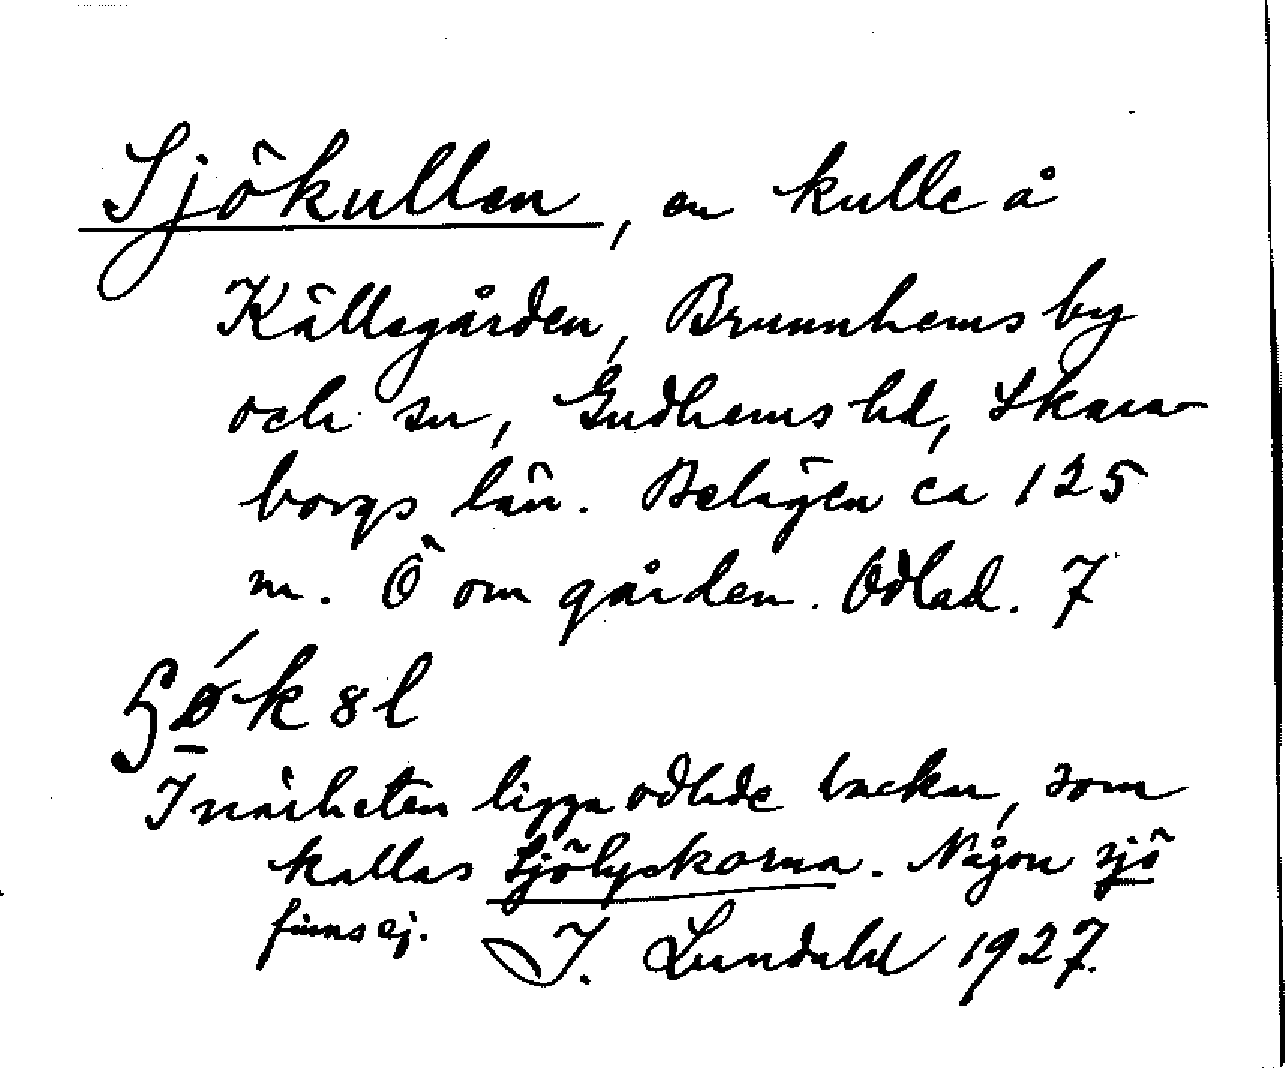 Sjökullen, en kulle å
Källegården, Brunnhems by
och sn, Gudhems hd, Skara-
borgs län. Belägen ca 125
m. Ö om gården. Odlad. 7
I närheten ligga odlade backar, som
kallas Sjölyckorna. Någon sjö
finns ej. I. Lundahl 1927.